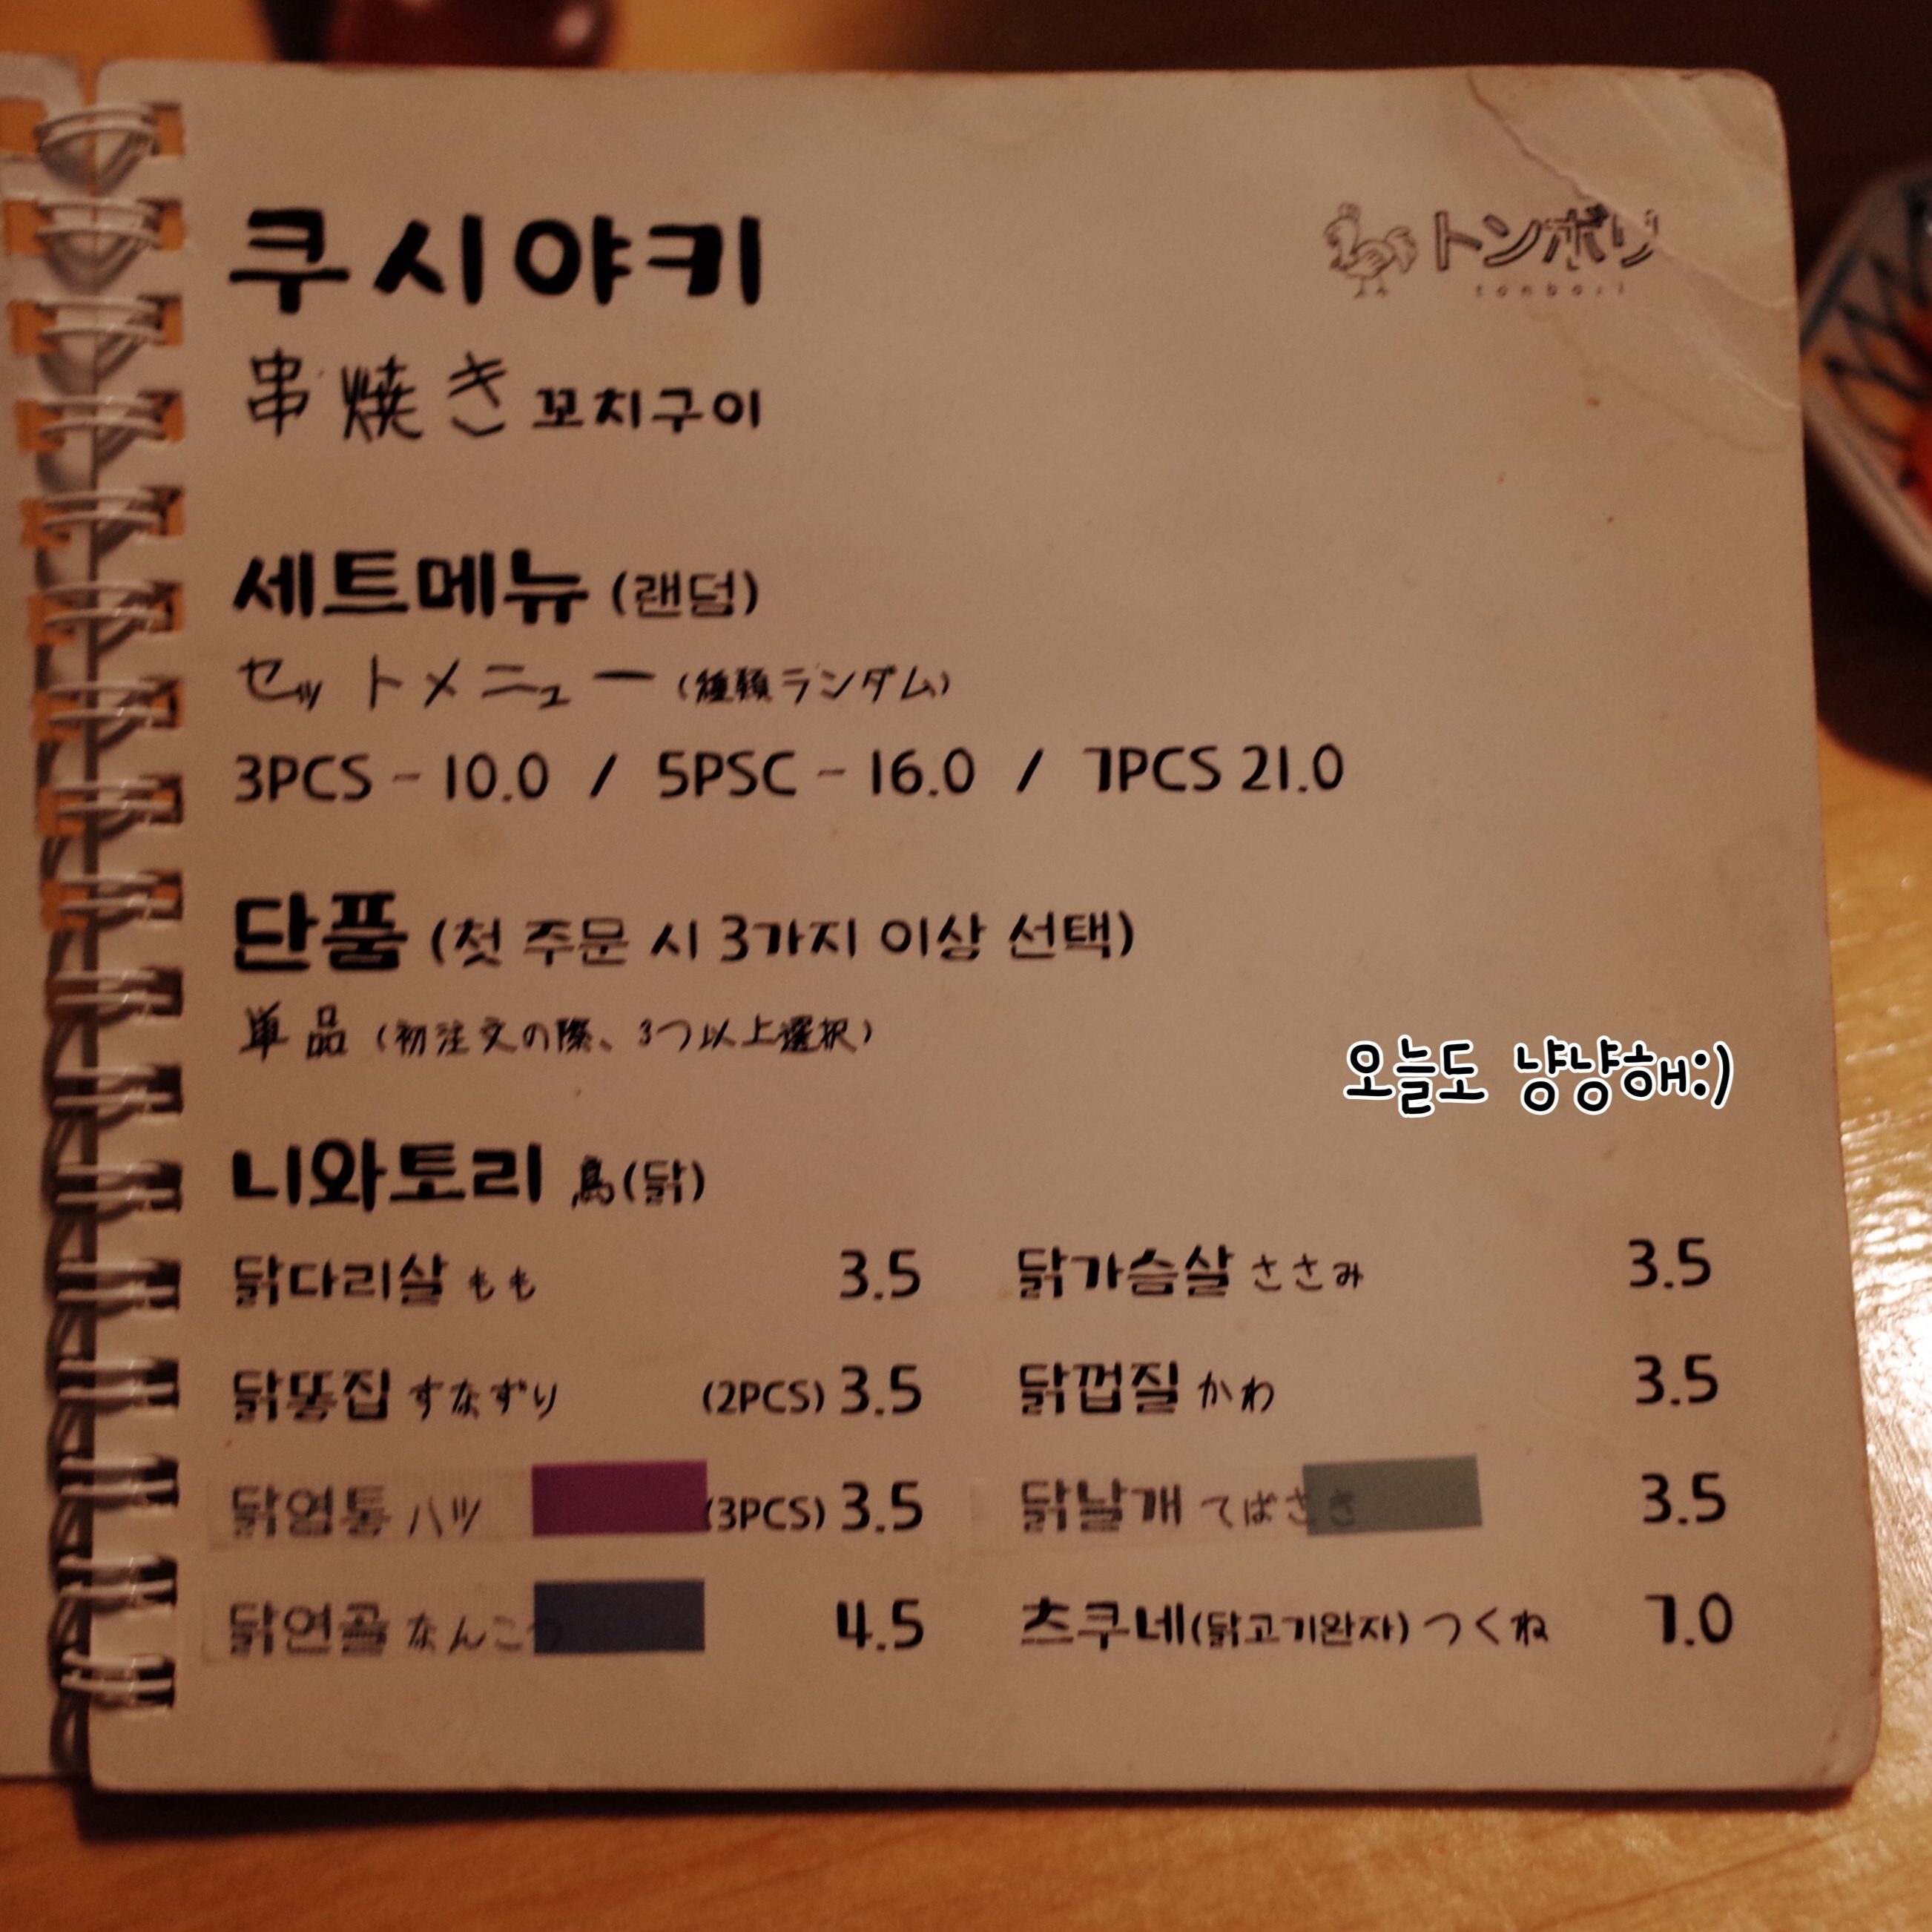 쿠시야키
トンボリ
tonbori
串焼き 꼬치구이
세트메뉴 (랜덤)
セットメニュー (種類ランダム)
3PCS - 10.0 / 5PSC - 16.0 / 7PCS 21.0
단품 (첫 주문 시 3가지 이상 선택)
単品 (初注文の際、3つ以上選択)
오늘도 냥냥해:)
니와토리 鳥(닭)
닭다리살 もも 3.5
닭가슴살 ささみ 3.5
닭똥집 すなずり (2PCS) 3.5
닭껍질 かわ 3.5
닭염통 ハツ (3PCS) 3.5
닭날개 てばさき 3.5
닭연골 なんこつ 4.5
츠쿠네(닭고기완자) つくね 7.0